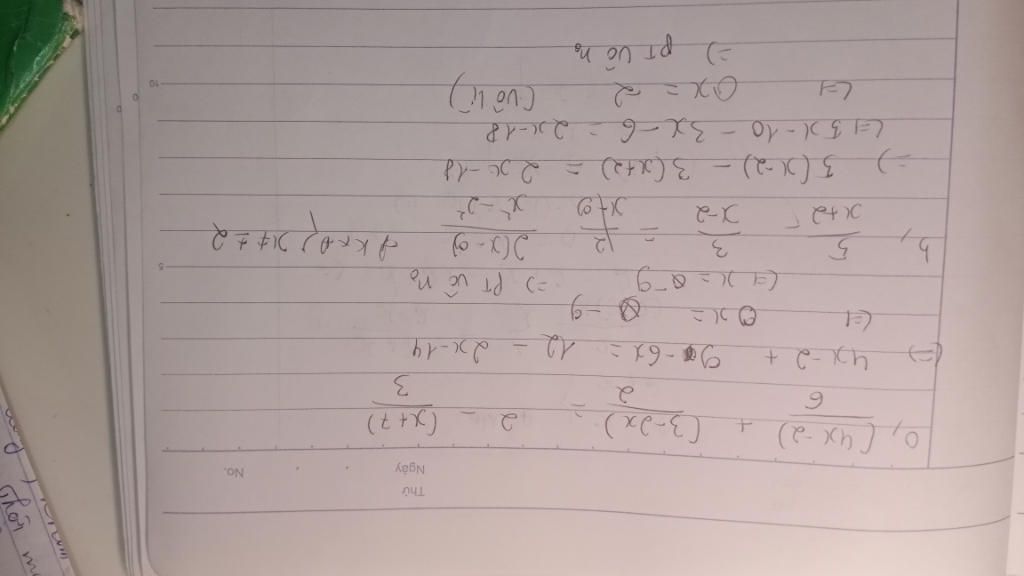 Thứ
Ngày
No.
a, (4x-2)/6 + (3-2x)/2 = 2 - (x+7)/3
(=) 4x-2 + 9-6x = 12 - 2x-14
(=) 0x = -9
(=) x = -9 => PT vô no
5
b, 5/(x+2) - 3/(x-2) = 2(x-9)/(x²-2²) đkxđ x ≠ ± 2
=) 5(x-2) - 3(x+2) = 2x-18
(=) 5x-10 - 3x-6 = 2x-18
(=) 0x = -2 (vô lí)
10
=) pt vô no